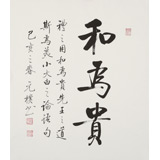 和為貴
礼之用和為貴先王之道
斯為美小大由之論語句
己亥之春